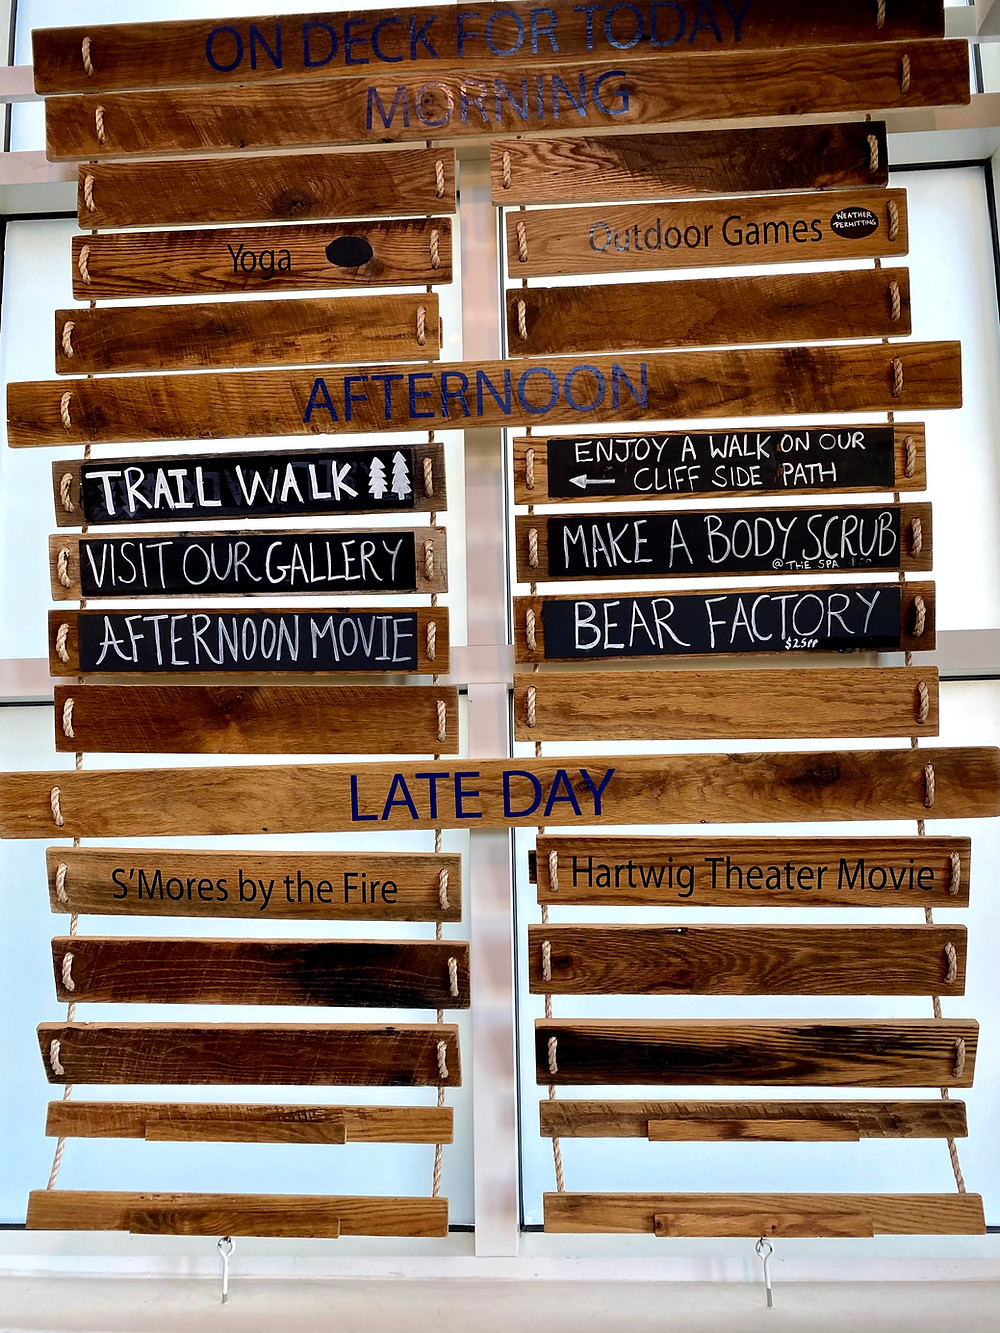 ON DECK FOR TODAY
MORNING
Yoga
Outdoor Games
WEATHER
PERMITTING
AFTERNOON
TRAIL WALK
ENJOY A WALK ON OUR
CLIFF SIDE PATH
VISIT OUR GALLERY
MAKE A BODY SCRUB
@ THE SPA
AFTERNOON MOVIE
BEAR FACTORY
$25PP
LATE DAY
S'Mores by the Fire
Hartwig Theater Movie